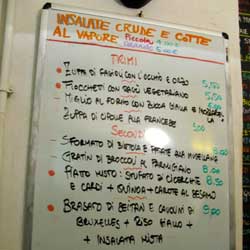 INSALATE CRUDE E COTTE
AL VAPORE Piccola 4.00 €
Grande 5.00 €
PRIMI
• ZUPPA DI FAGIOLI CON L'OCCHIO E ORZO 5,50
• FIOCCHETTI CON RAGÙ VEGETARIANO 5.50
• MIGLIO AL FORNO CON ZUCCA GIALLA E
• ZUPPA DI CIPOLLE ALLA FRANCESE 5.00
SECONDI
• SFORMATO DI BIETOLA E PATATE ALLA
• GRATIN DI BROCCOLI AL PARMIGIANO 8.00
• PIATTO MISTO: STUFATO DI CICERCHIE 8.50
E CARDI + QUINOA + CAROTE AL SESAMO
• BRASATO DI SEITAN E CAVOLINI DI 9,00
BRUXELLES + RISO GIALLO +
+ INSALATA MISTA